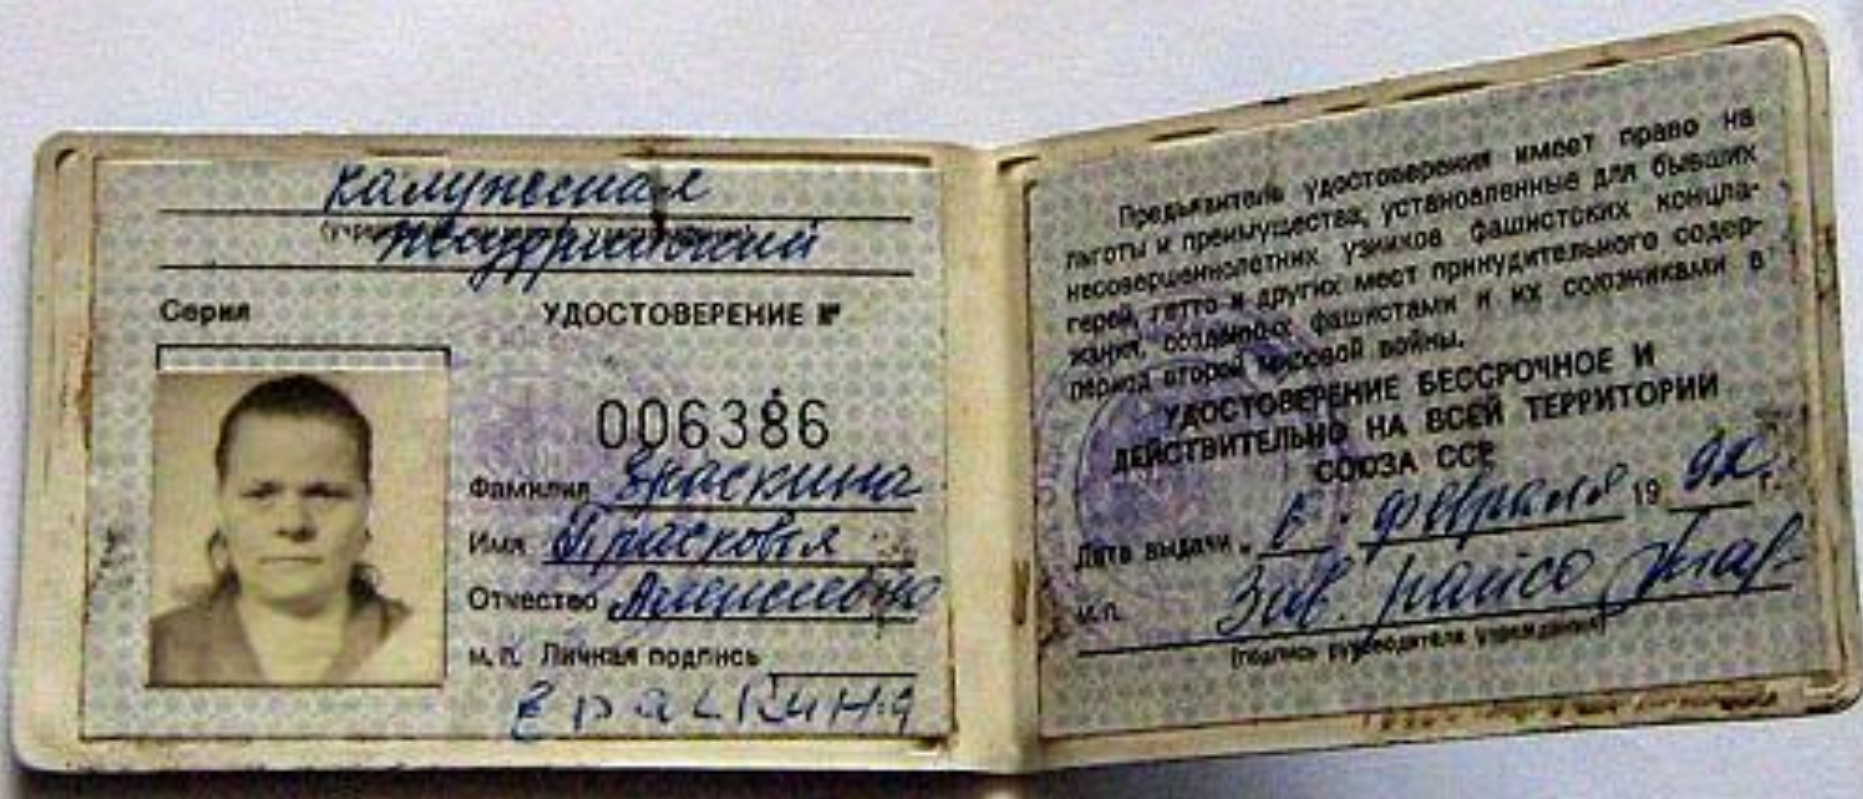 Калужская
Серия
УДОСТОВЕРЕНИЕ №
006386
Фамилия Ераскина
Имя Прасковья
Отчество Алексеевна
м. п. Личная подпись
Ераскина
Предъявитель удостоверения имеет право на
льготы и преимущества, установленные для бывших
несовершеннолетних узников фашистских концла-
герей, гетто и других мест принудительного содер-
жания, созданных фашистами и их союзниками в
период второй мировой войны.
УДОСТОВЕРЕНИЕ БЕССРОЧНОЕ И
ДЕЙСТВИТЕЛЬНО НА ВСЕЙ ТЕРРИТОРИИ
СОЮЗА ССР
Дата выдачи „ февраля 19 92 г.
м.п. Зав. райсо
(подпись руководителя учреждения)